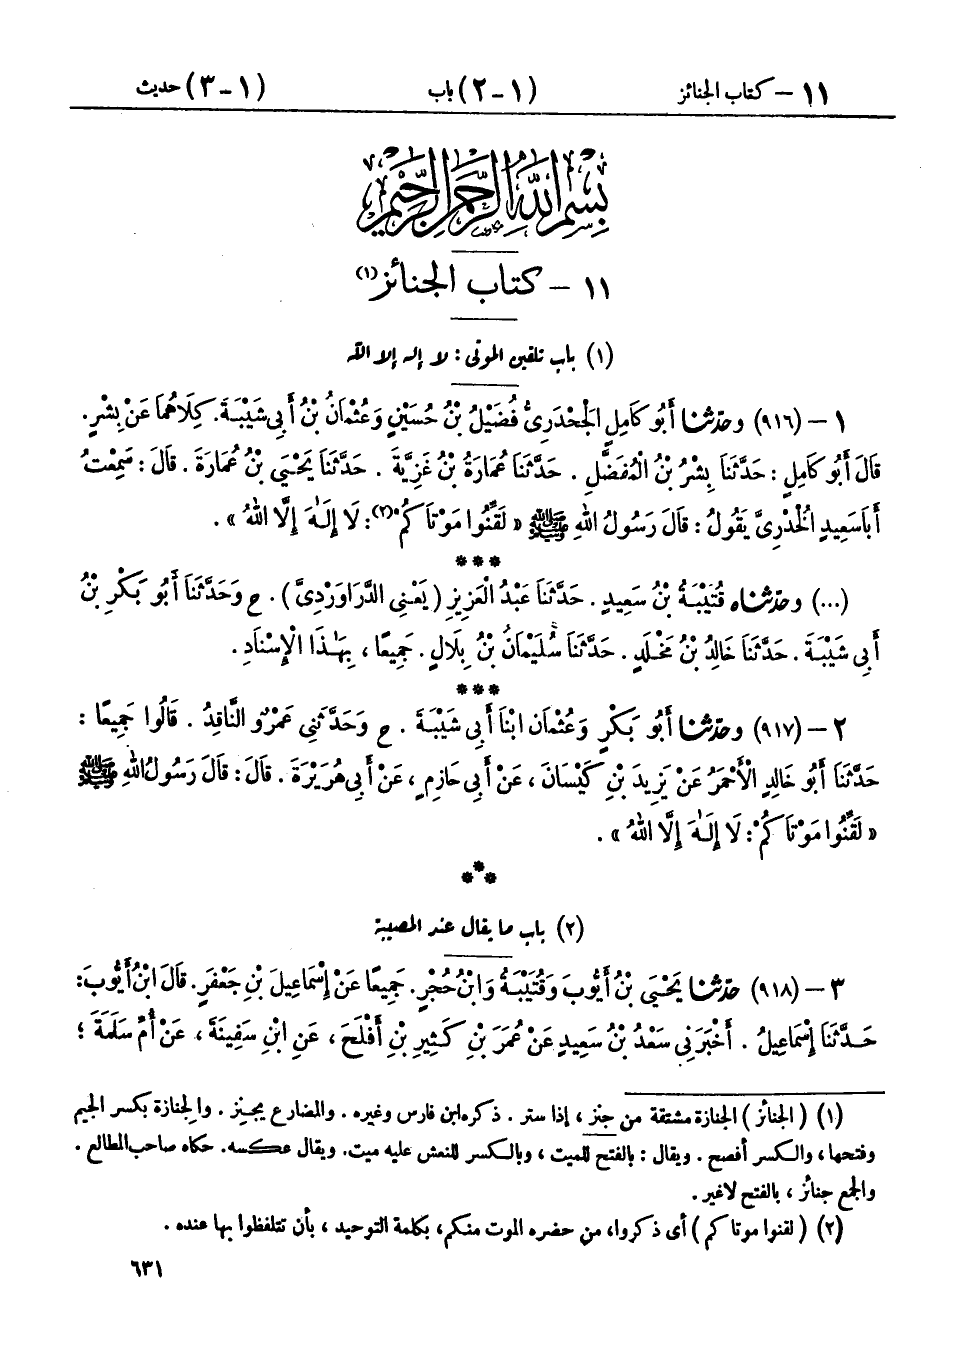 ١١ – كتاب الجنائز (١ – ٢) باب (١ – ٣) حديث
بِسْمِ اللهِ الرَّحْمٰنِ الرَّحِيمِ
١١ – كتاب الجنائز (١)
(١) باب تلقين الموتى : لا إله إلا الله
١ – (٩١٦) وحدّثنا أَبُو كَامِلٍ الْجَحْدَرِىُّ فُضَيْلُ بْنُ حُسَيْنٍ وَعُثْمَانُ بْنُ أَبِى شَيْبَةَ. كِلَاهُمَا عَنْ بِشْرٍ.
قَالَ أَبُو كَامِلٍ : حَدَّثَنَا بِشْرُ بْنُ الْمُفَضَّلِ . حَدَّثَنَا عُمَارَةُ بْنُ غَزِيَّةَ . حَدَّثَنَا يَحْيَى بْنُ عُمَارَةَ . قَالَ : سَمِعْتُ
أَبَا سَعِيدٍ الْخُدْرِىَّ يَقُولُ : قَالَ رَسُولُ اللهِ ﷺ « لَقِّنُوا مَوْتَاكُمْ (٢): لَا إِلَـٰهَ إِلَّا اللهُ » .
***
(...) وحدّثناه قُتَيْبَةُ بْنُ سَعِيدٍ . حَدَّثَنَا عَبْدُ الْعَزِيزِ ( يَعْنِى الدَّرَاوَرْدِىَّ ) . ح وَحَدَّثَنَا أَبُو بَكْرِ بْنُ
أَبِى شَيْبَةَ . حَدَّثَنَا خَالِدُ بْنُ مَخْلَدٍ . حَدَّثَنَا سُلَيْمَانُ بْنُ بِلَالٍ . جَمِيعًا ، بِهَـٰذَا الْإِسْنَادِ .
***
٢ – (٩١٧) وحدّثنا أَبُو بَكْرٍ وَعُثْمَان ابْنَا أَبِى شَيْبَةَ . ح وَحَدَّثَنِى عَمْرٌو النَّاقِدُ . قَالُوا جَمِيعًا :
حَدَّثَنَا أَبُو خَالِدٍ الْأَحْمَرُ عَنْ يَزِيدَ بْنِ كَيْسَانَ ، عَنْ أَبِى حَازِمٍ ، عَنْ أَبِى هُرَيْرَةَ . قَالَ : قَالَ رَسُولُ اللهِ ﷺ
« لَقِّنُوا مَوْتَاكُمْ : لَا إِلَـٰهَ إِلَّا اللهُ » .
***
(٢) باب ما يقال عند المصيبة
٣ – (٩١٨) حدّثنا يَحْيَى بْنُ أَيُّوبَ وَقُتَيْبَةُ وَابْنُ حُجْرٍ. جَمِيعًا عَنْ إِسْمَاعِيلَ بْنِ جَعْفَرٍ. قَالَ ابْنُ أَيُّوبَ:
حَدَّثَنَا إِسْمَاعِيلُ . أَخْبَرَنِى سَعْدُ بْنُ سَعِيدٍ عَنْ عُمَرَ بْنِ كَثِيرِ بْنِ أَفْلَحَ ، عَنِ ابْنِ سَفِينَةَ ، عَنْ أُمِّ سَلَمَةَ ؛
(١) ( الجنائز ) الجنازة مشتقة من جنز ، إذا ستر . ذكره ابن فارس وغيره . والمضارع يجنِز . والجنازة بكسر الجيم
وفتحها ، والكسر أفصح . ويقال : بالفتح للميت ، وبالكسر للنعش عليه ميت. ويقال عكسه. حكاه صاحب المطالع .
والجمع جنائز ، بالفتح لاغير .
(٢) ( لقنوا موتاكم ) أى ذكروا، من حضره الموت منكم، بكلمة التوحيد ، بأن تتلفظوا بها عنده .
٦٣١